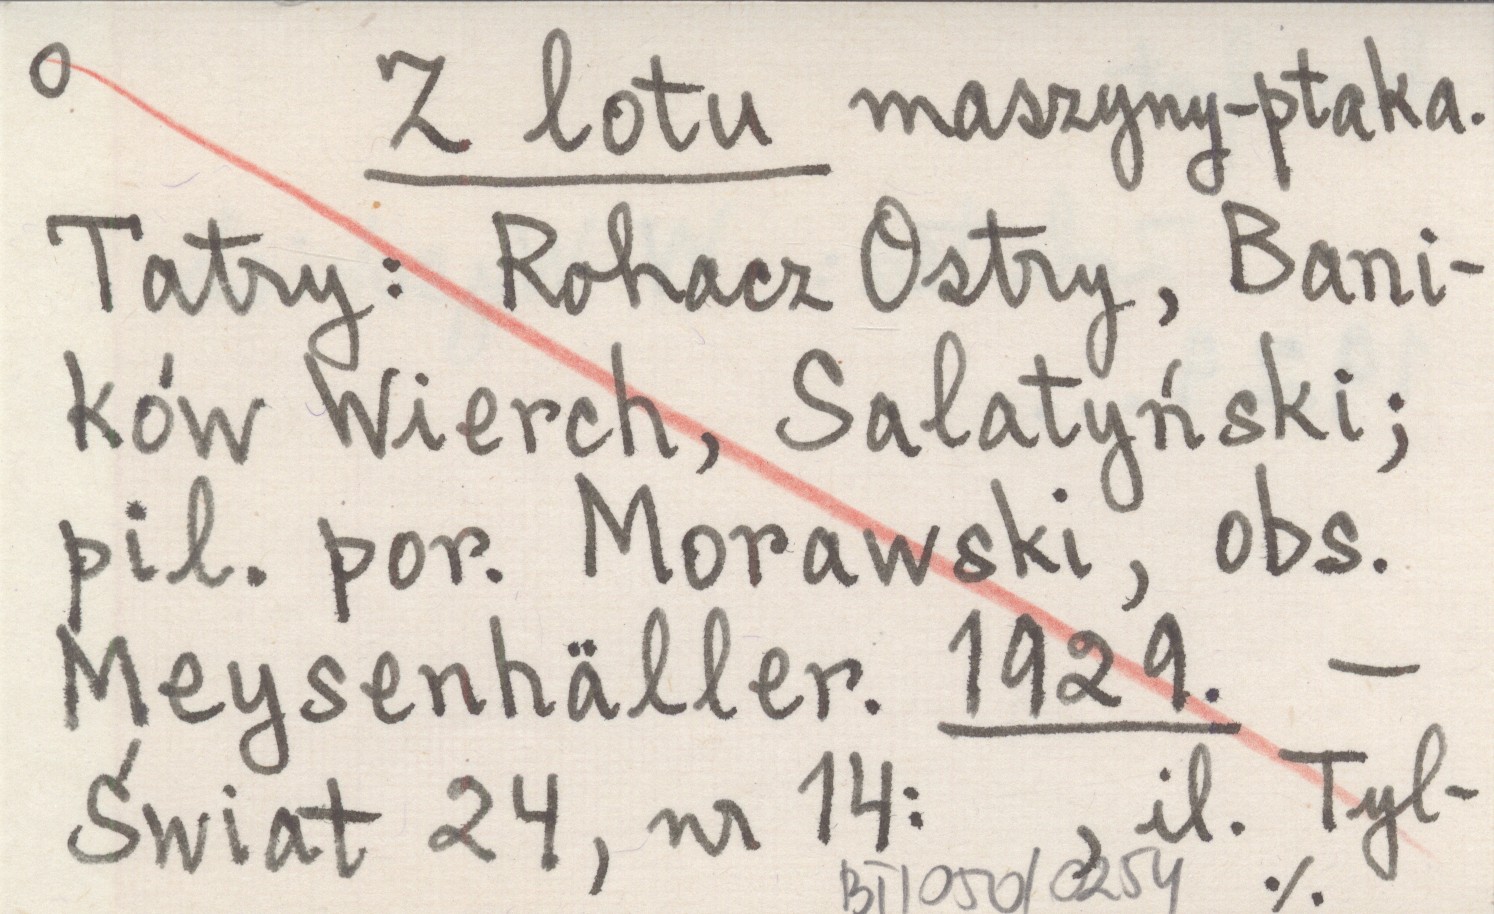 O Z lotu maszyny-ptaka.
Tatry: Rohacz Ostry, Bani-
ków Wierch, Salatyński;
pil. por. Morawski, obs.
Meysenhäller. 1929. —
Świat 24, nr 14: , il. Tyl-
BT1050/0254 ./.